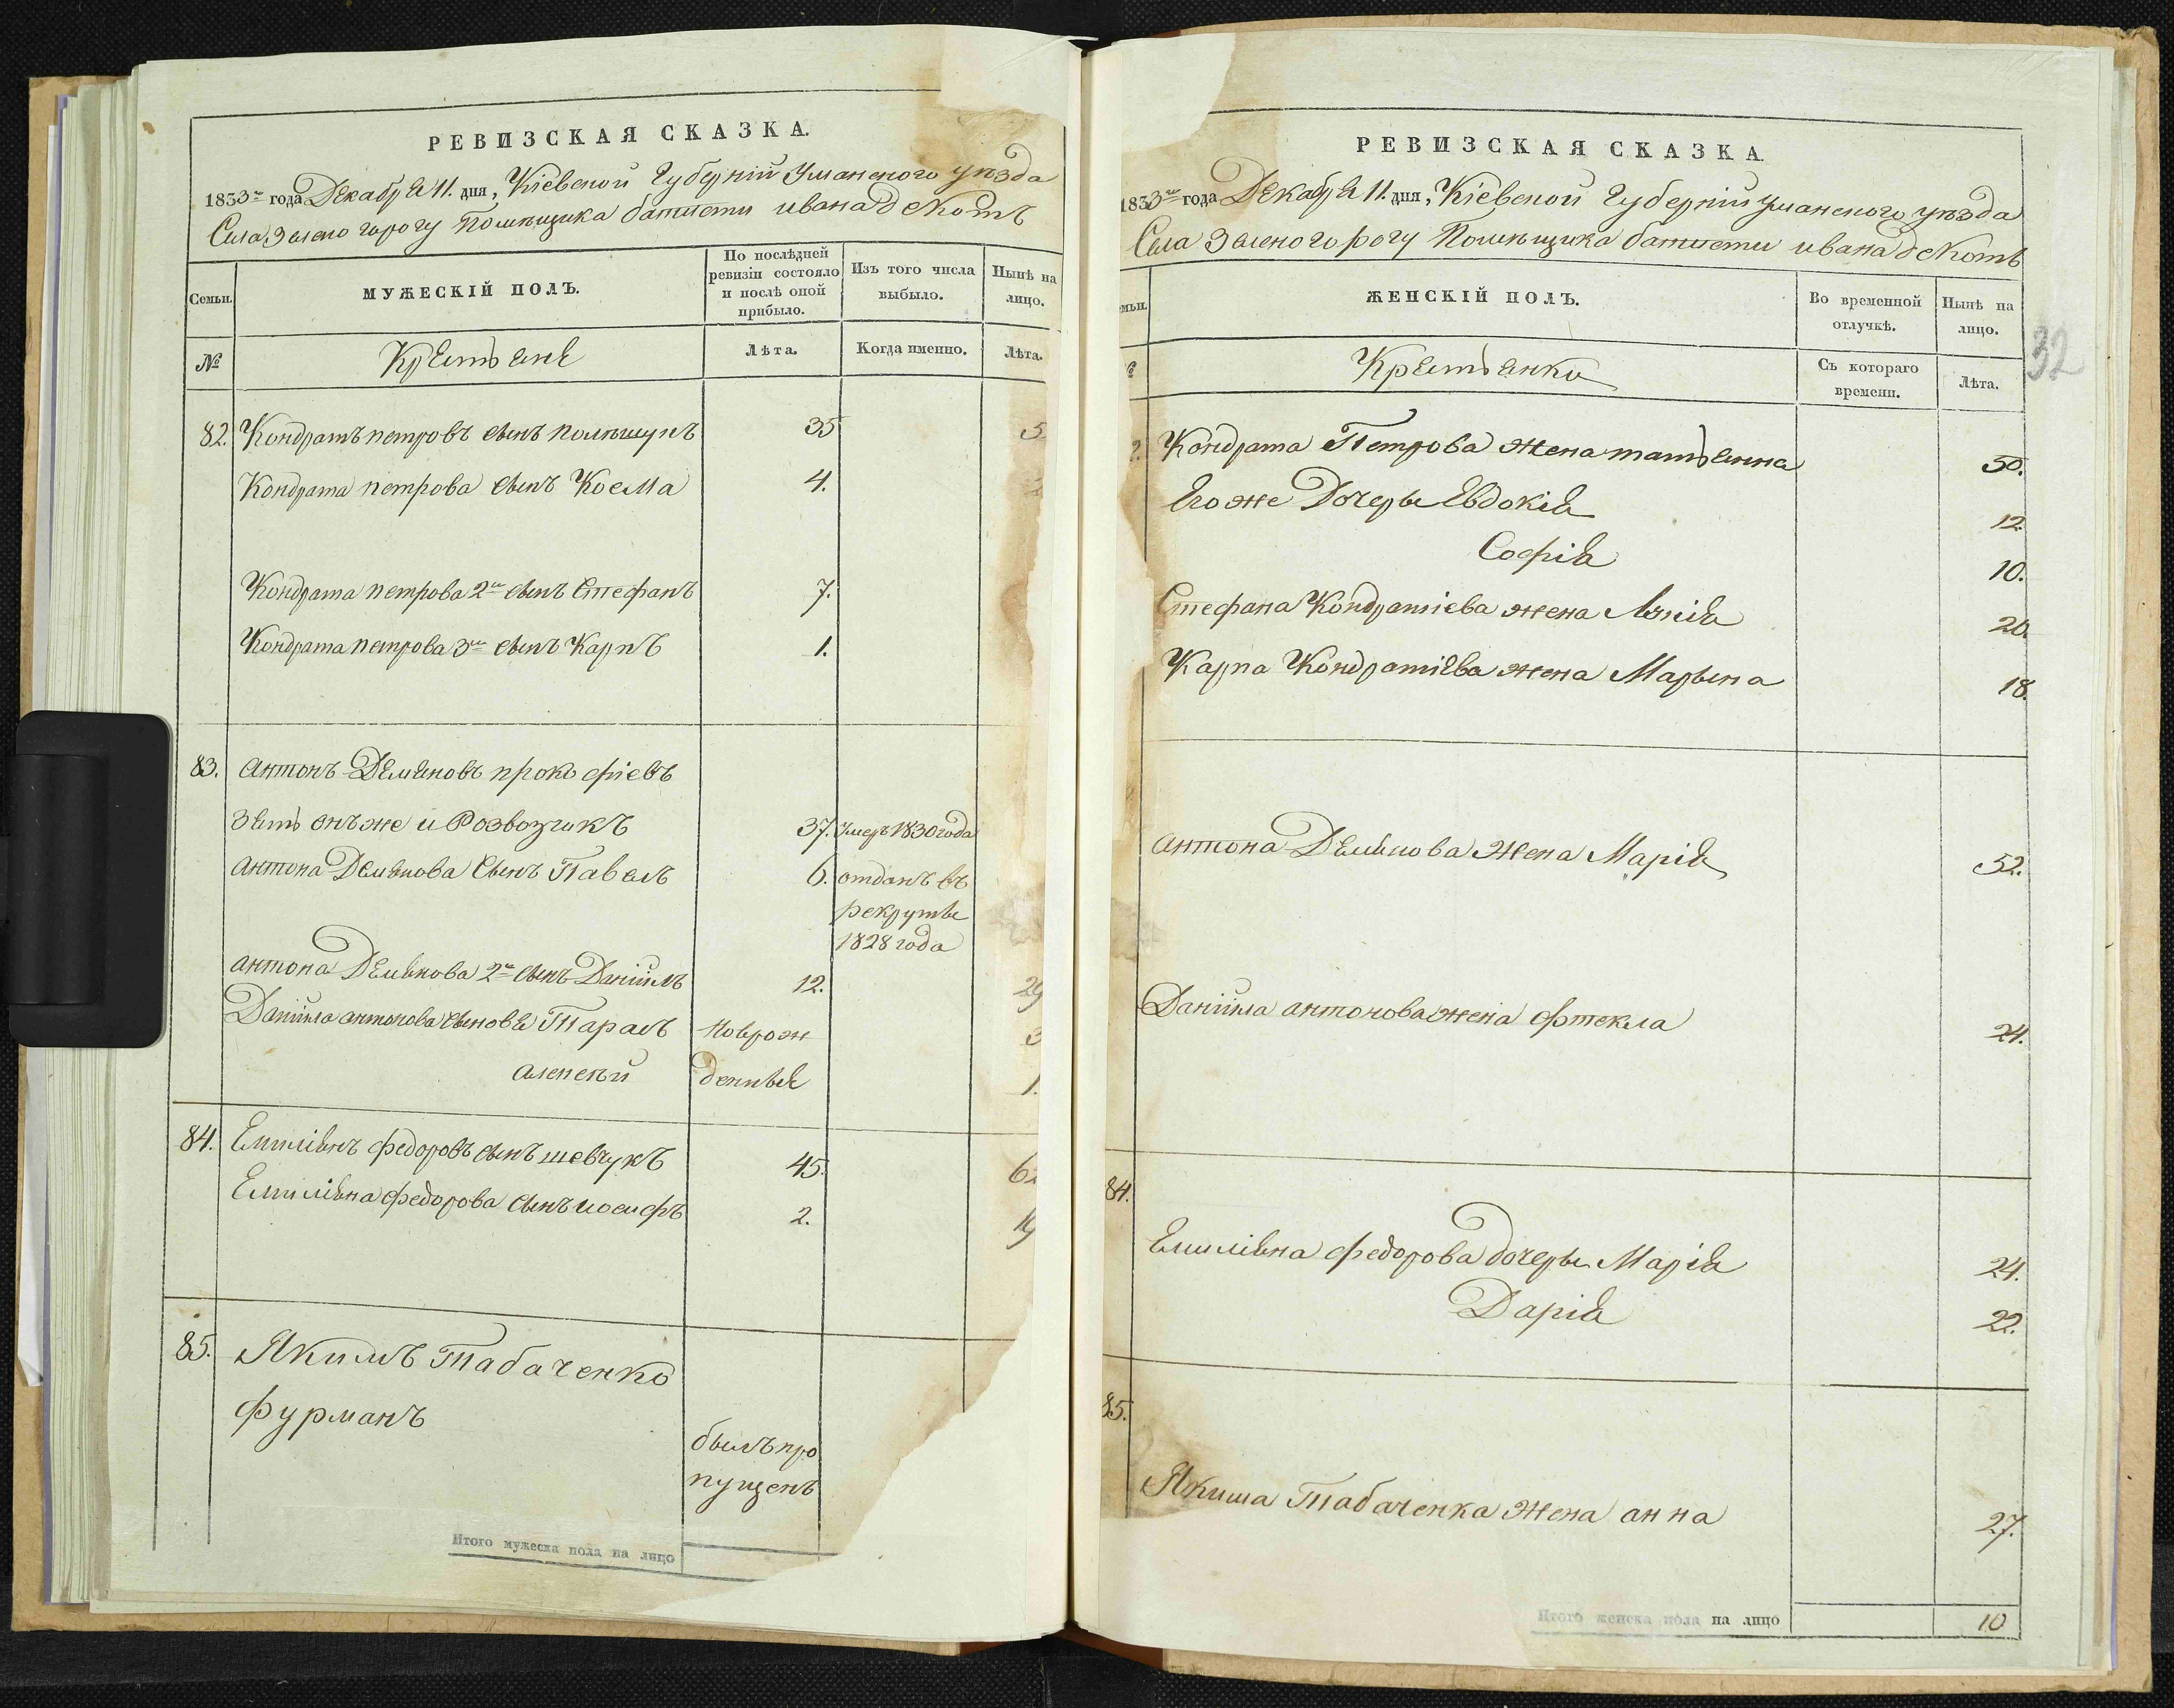 РЕВИЗСКАЯ СКАЗКА.
1833го года Декабря 11. дня, Кіевской Губерніи Уманского уѣзда
Села Зелено горогу Помѣщика батисти ивана
Семьи.
МУЖЕСКІЙ ПОЛЪ.
По послѣдней ревизіи состояло и послѣ оной прибыло.
Изъ того числа выбыло.
Нынѣ на лицо.
№
Крестьяне
Лѣта.
Когда именно.
Лѣта.
82. Кондратъ петровъ сынъ 35 5
Кондрата петрова сынъ Косма 4.
Кондрата петрова 2й сынъ Стефанъ 7.
Кондрата петрова 3й сынъ Карпъ 1.
83. антонъ Демяновъ прокофіевъ
зять онъ же и Розвозчикъ 37. Умеръ 1830 года
антона Демянова Сынъ Павелъ 6. отданъ въ
рекруты
1828 года
антона Демянова 2й сынъ Даніилъ 12. 29
Даніила антонова сыновя Тарасъ новрож 3
алексѣй денные 1.
84. Емиліянъ федоровъ сынъ шевчукъ 45. 62
Емиліяна федорова сынъ иосифъ 2. 19
85. Якимъ Табаченко
фурманъ
былъ про
пущенъ
Итого мужеска пола на лицо
РЕВИЗСКАЯ СКАЗКА.
32
1833го года Декабря 11. дня, Кіевской Губерніи Уманского уѣзда
Села Зеленогорогу Помѣщика батисти ивана
мьи.
ЖЕНСКІЙ ПОЛЪ.
Во временной отлучкѣ.
Нынѣ на лицо.
Крестьянки
Съ котораго времени.
Лѣта.
2. Кондрата Петрова жена татьянна 50.
Его же Дочеры Евдокія 12.
Софія 10.
Стефана Кондратіева жена 20.
Карпа Кондратіева жена Марына 18.
антона Демянова жена Марія 52.
Даніила антонова жена фтекла 24.
84.
Емиліяна федорова дочеры Марія 24.
Дарія 22.
85.
Якима Табаченка жена анна 27.
Итого женска пола на лицо 10